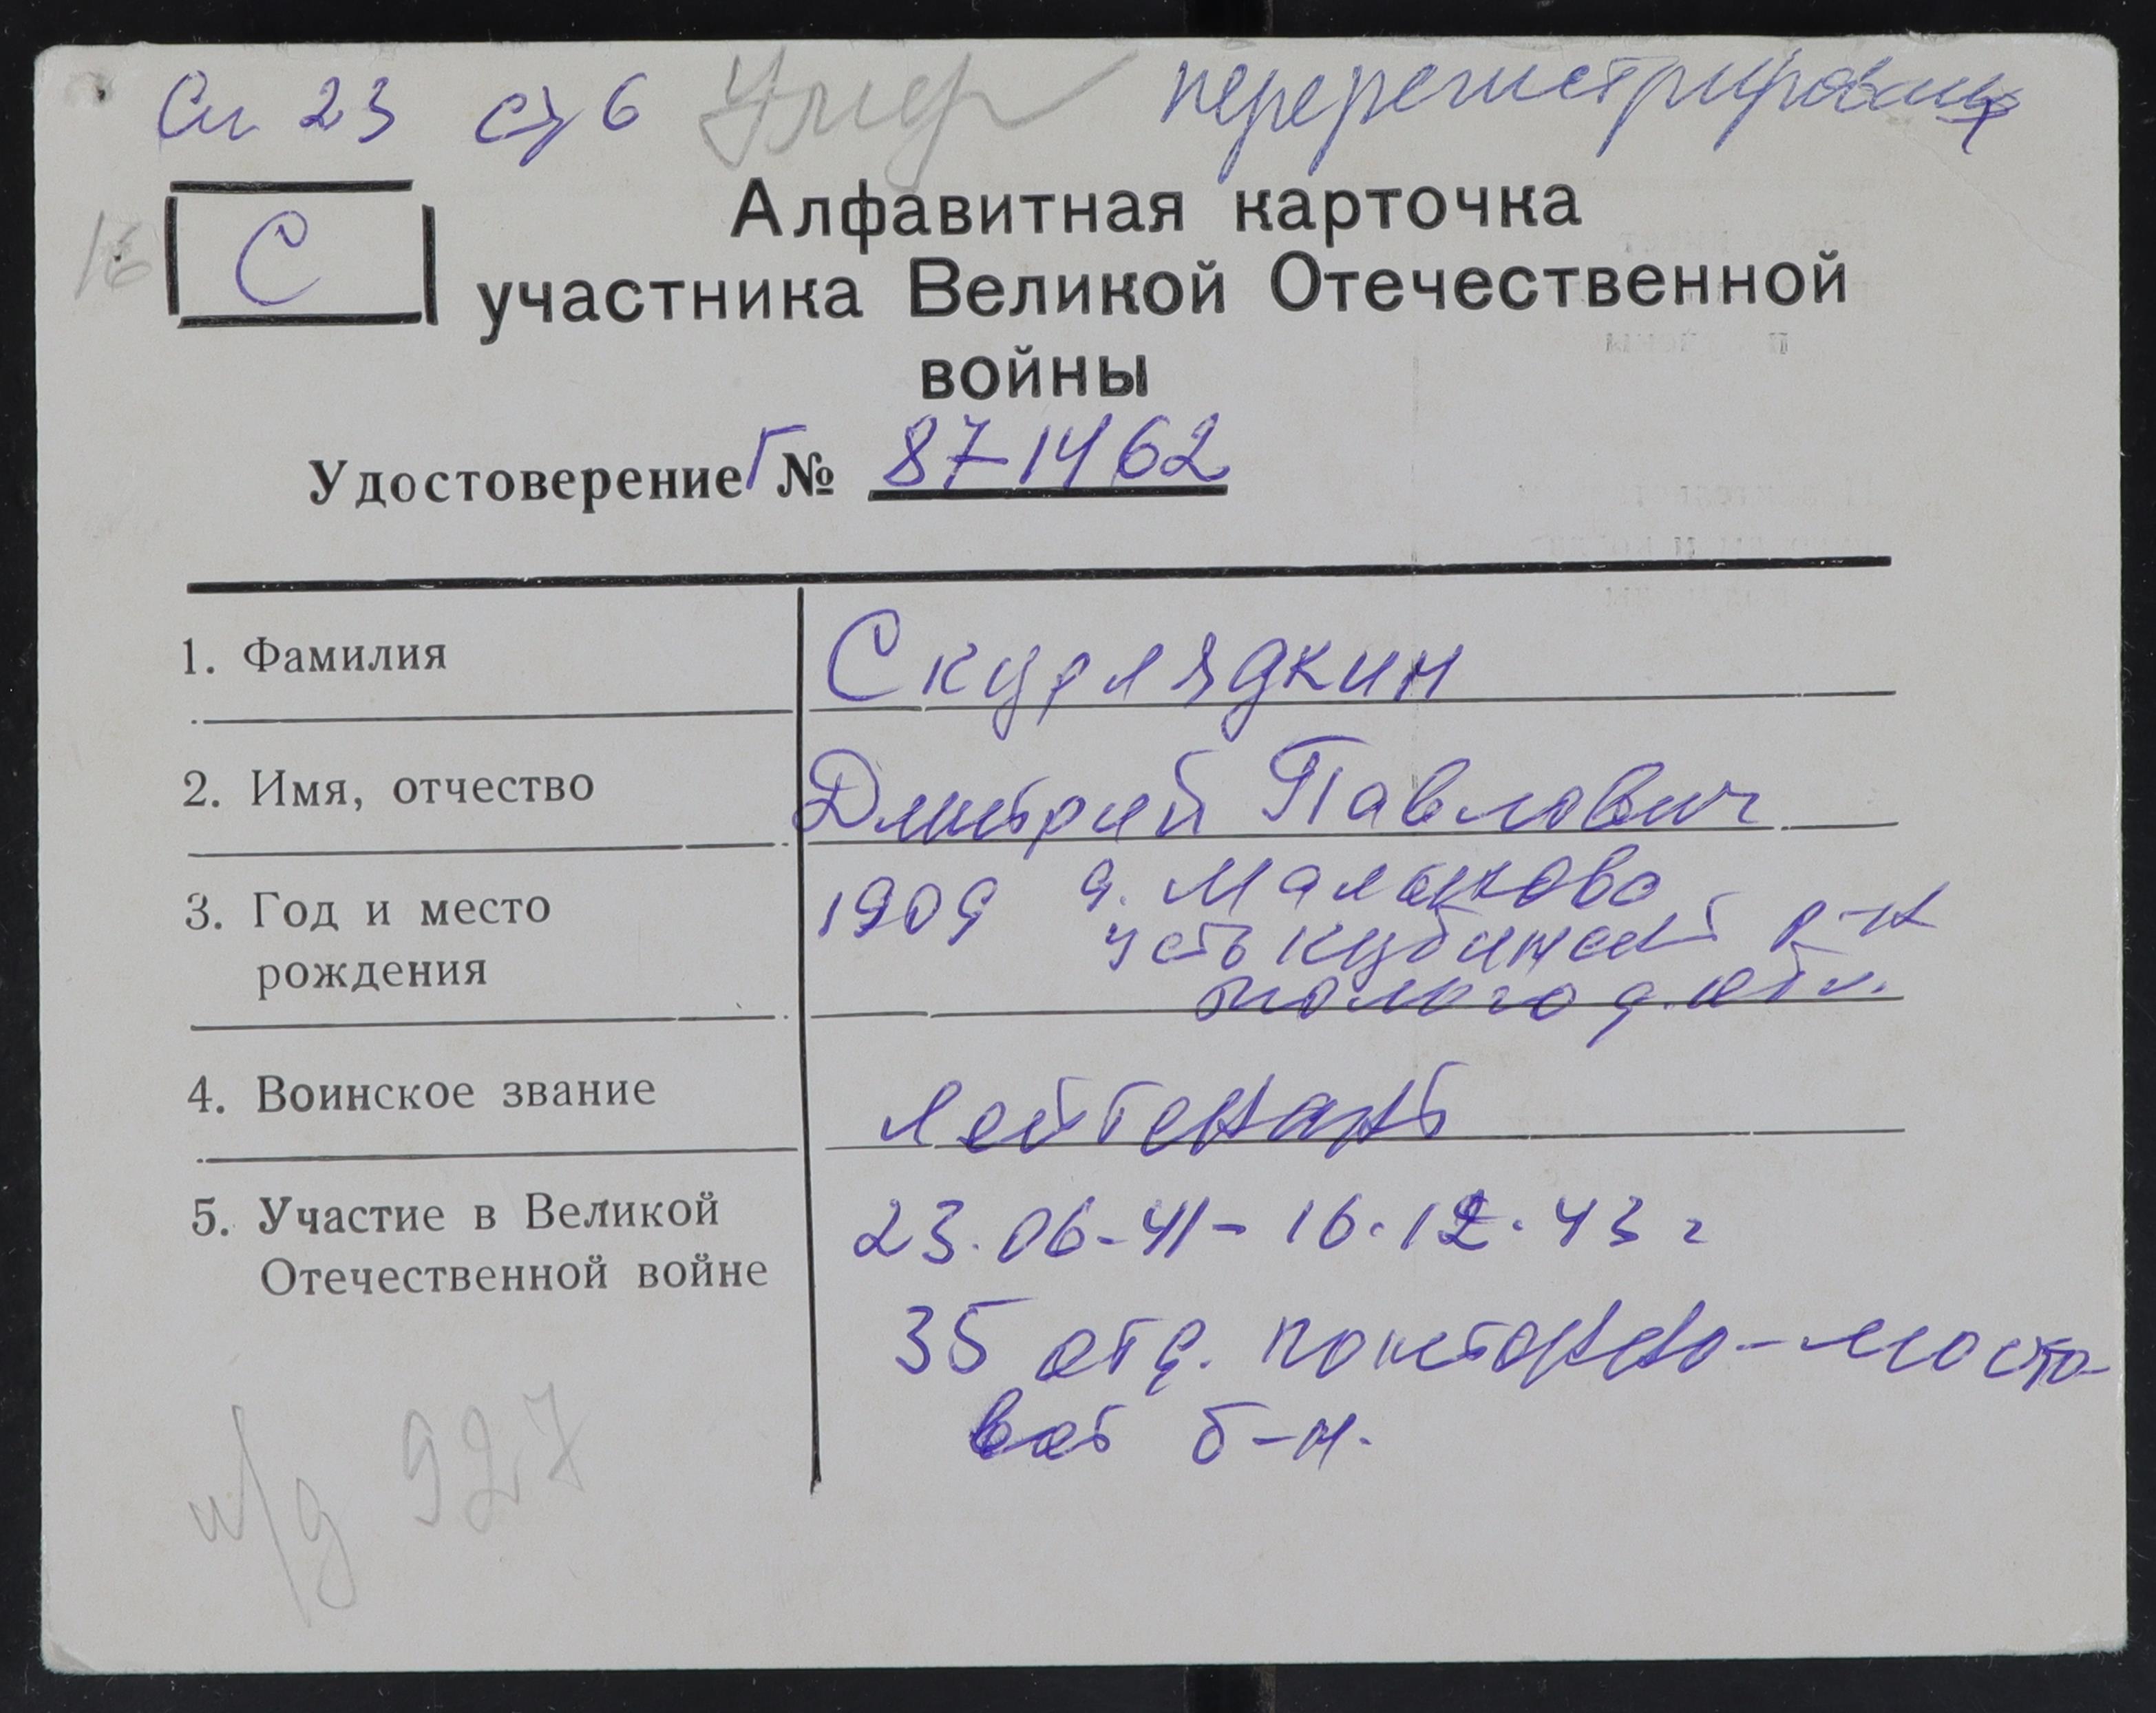 Сп 23 стр 6 Умер перерегистрирован
16 С
Алфавитная карточка
участника Великой Отечественной
войны
Удостоверение Г № 871462
1. Фамилия Скурлядкин
2. Имя, отчество Дмитрий Павлович
3. Год и место 1909 д.
рождения усть кубинский р-н
обл.
4. Воинское звание лейтенант
5. Участие в Великой 23.06-41- 16.12.43 г
Отечественной войне
35 отд. понтонно-мосто-
вой б-н.
и/д 927